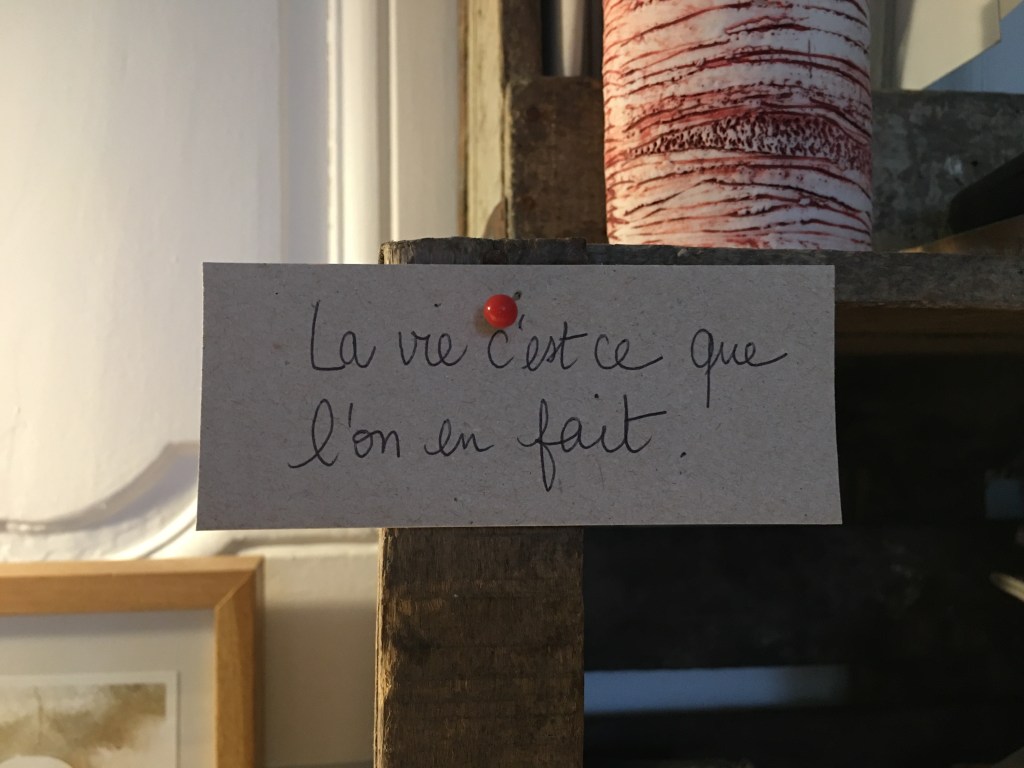 La vie c'est ce que
l'on en fait.